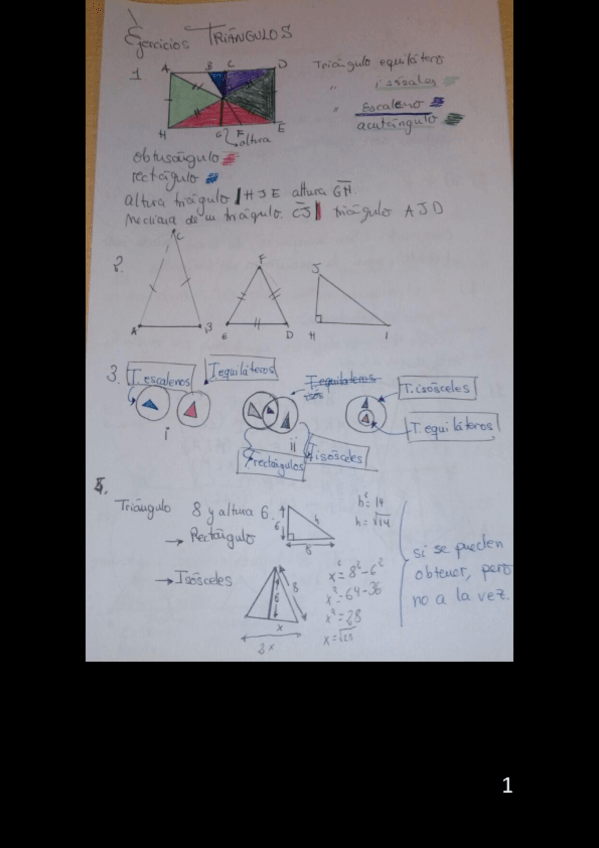 Ejercicios TRIÁNGULOS
1
A B C D
H G F E
altura
Triángulo equilátero
" isósceles
" Escaleno
acutángulo
obtusángulo
rectángulo
altura triángulo HJE altura GH
Mediana de un triángulo. CJ triángulo AJD
2.
C
A B
F
E D
J
H I
3.
T. escalenos
T. equiláteros
i
T. equiláteros
T. rectángulos
T. isósceles
ii
T. isósceles
T. equiláteros
4.
Triángulo 8 y altura 6.
→ Rectángulo
6
8
h
h² = 14
h = √14
→ Isósceles
6
8
x
2x
x² = 8² - 6²
x² = 64 - 36
x² = 28
x = √28
si se pueden
obtener, pero
no a la vez.
1